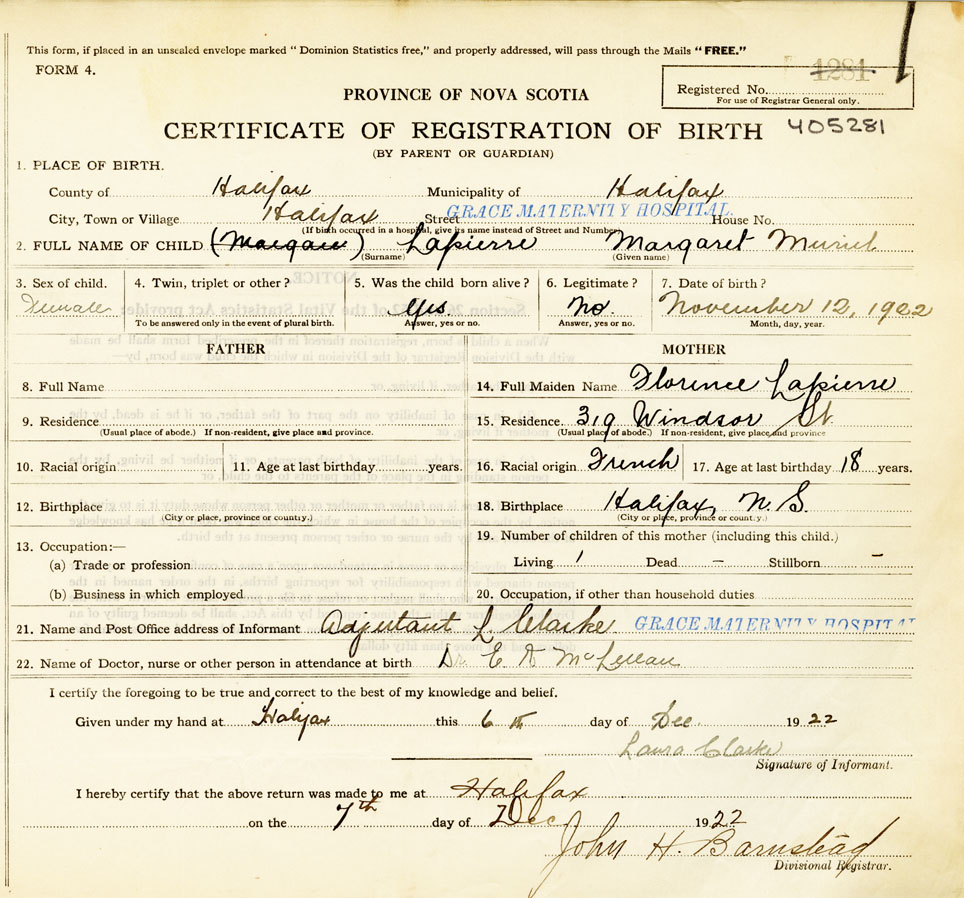 This form, if placed in an unsealed envelope marked “Dominion Statistics free,” and properly addressed, will pass through the Mails “FREE.”
FORM 4.
1281
Registered No.
For use of Registrar General only.
PROVINCE OF NOVA SCOTIA
CERTIFICATE OF REGISTRATION OF BIRTH 405281
(BY PARENT OR GUARDIAN)
1. PLACE OF BIRTH.
County of Halifax Municipality of Halifax
City, Town or Village Halifax Street GRACE MATERNITY HOSPITAL. House No.
(If birth occurred in a hospital, give its name instead of Street and Number)
2. FULL NAME OF CHILD Lapierre Margaret Muriel
(Surname) (Given name)
3. Sex of child. 4. Twin, triplet or other? 5. Was the child born alive? 6. Legitimate? 7. Date of birth?
Female Yes. No. November 12, 1922
To be answered only in the event of plural birth. Answer, yes or no. Answer, yes or no. Month, day, year.
FATHER MOTHER
8. Full Name 14. Full Maiden Name Florence Lapierre
9. Residence 15. Residence 319 Windsor St
(Usual place of abode.) If non-resident, give place and province. (Usual place of abode.) If non-resident, give place and province
10. Racial origin 11. Age at last birthday years. 16. Racial origin French 17. Age at last birthday 18 years.
12. Birthplace 18. Birthplace Halifax, N.S.
(City or place, province or country.) (City or place, province or country.)
13. Occupation:— 19. Number of children of this mother (including this child.)
(a) Trade or profession Living 1 Dead — Stillborn —
(b) Business in which employed 20. Occupation, if other than household duties
21. Name and Post Office address of Informant Adjutant L Clarke GRACE MATERNITY HOSPITAL
22. Name of Doctor, nurse or other person in attendance at birth Dr. E
I certify the foregoing to be true and correct to the best of my knowledge and belief.
Given under my hand at Halifax this 6 th day of Dec 1922
Laura Clarke
Signature of Informant.
I hereby certify that the above return was made to me at Halifax
on the 7th day of Dec 1922
John H. Barnstead
Divisional Registrar.